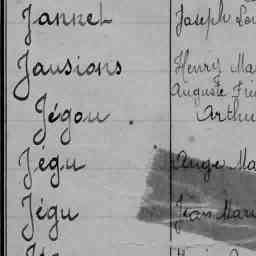 Jannel Joseph
Jausions Henry
Auguste
Jégou Arthu
Jégu Ange Ma
Jégu Jean Mari